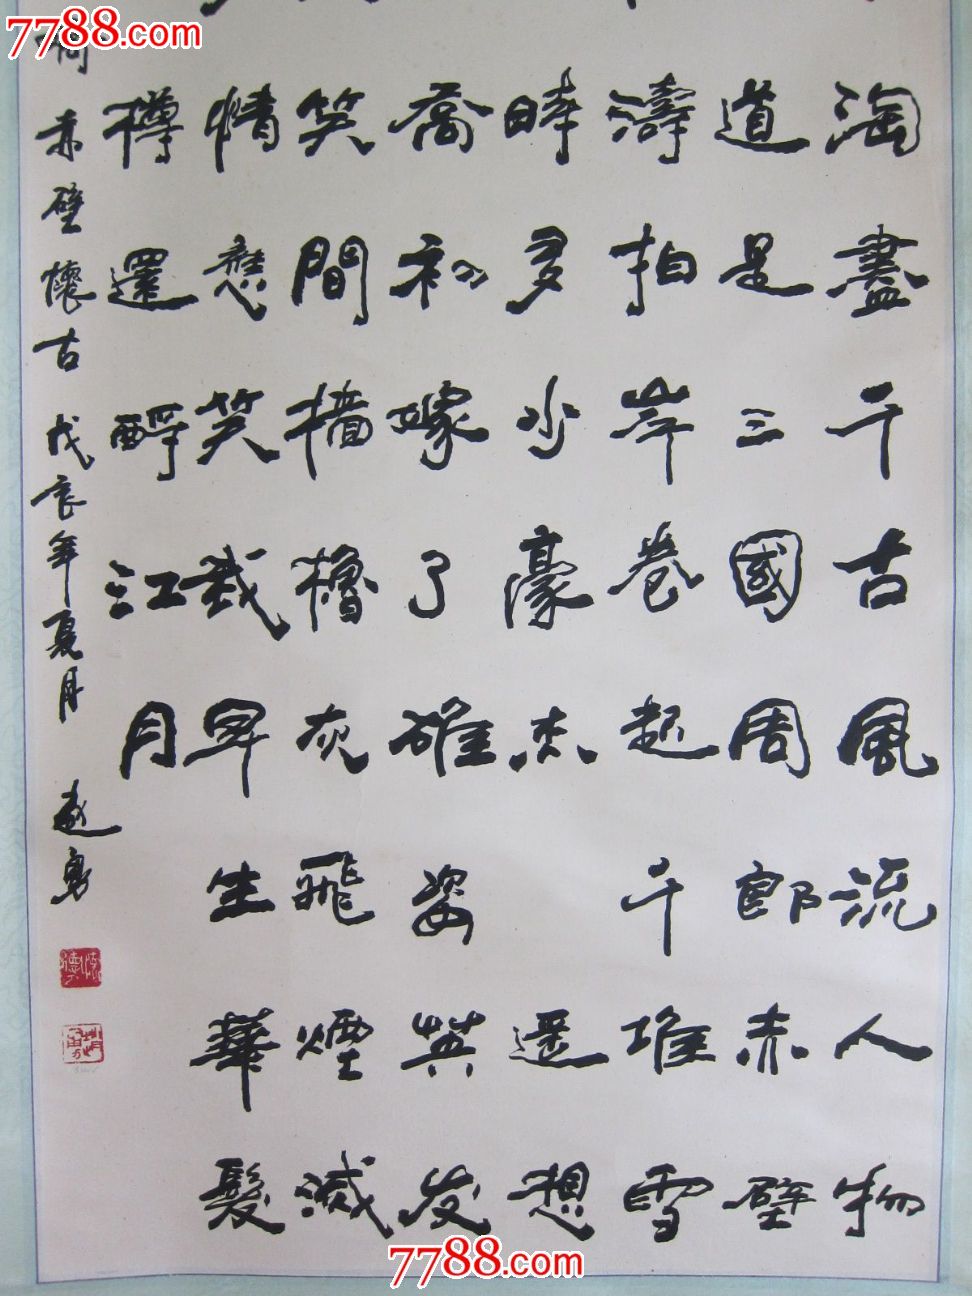 7788.com
淘盡千古風流人物
道是三國周郎赤壁
濤拍岸卷起千堆雪
時多少豪杰 遥想
喬初嫁了雄姿英发
笑間檣櫓灰飛煙滅
情應笑我早生華髮
樽還酹江月
赤壁懷古 戊辰年夏月
7788.com